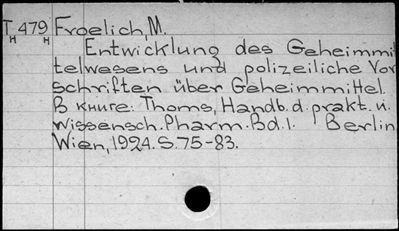 T 479 Froelich, M.
H H
Entwicklung des Geheimmi
telwesens und polizeiliche Vor
schriften über Geheimmittel.
В книге: Thoms, Handb. d. prakt. u.
wissensch. Pharm. Bd. 1. Berlin
Wien, 1924. S. 75-83.